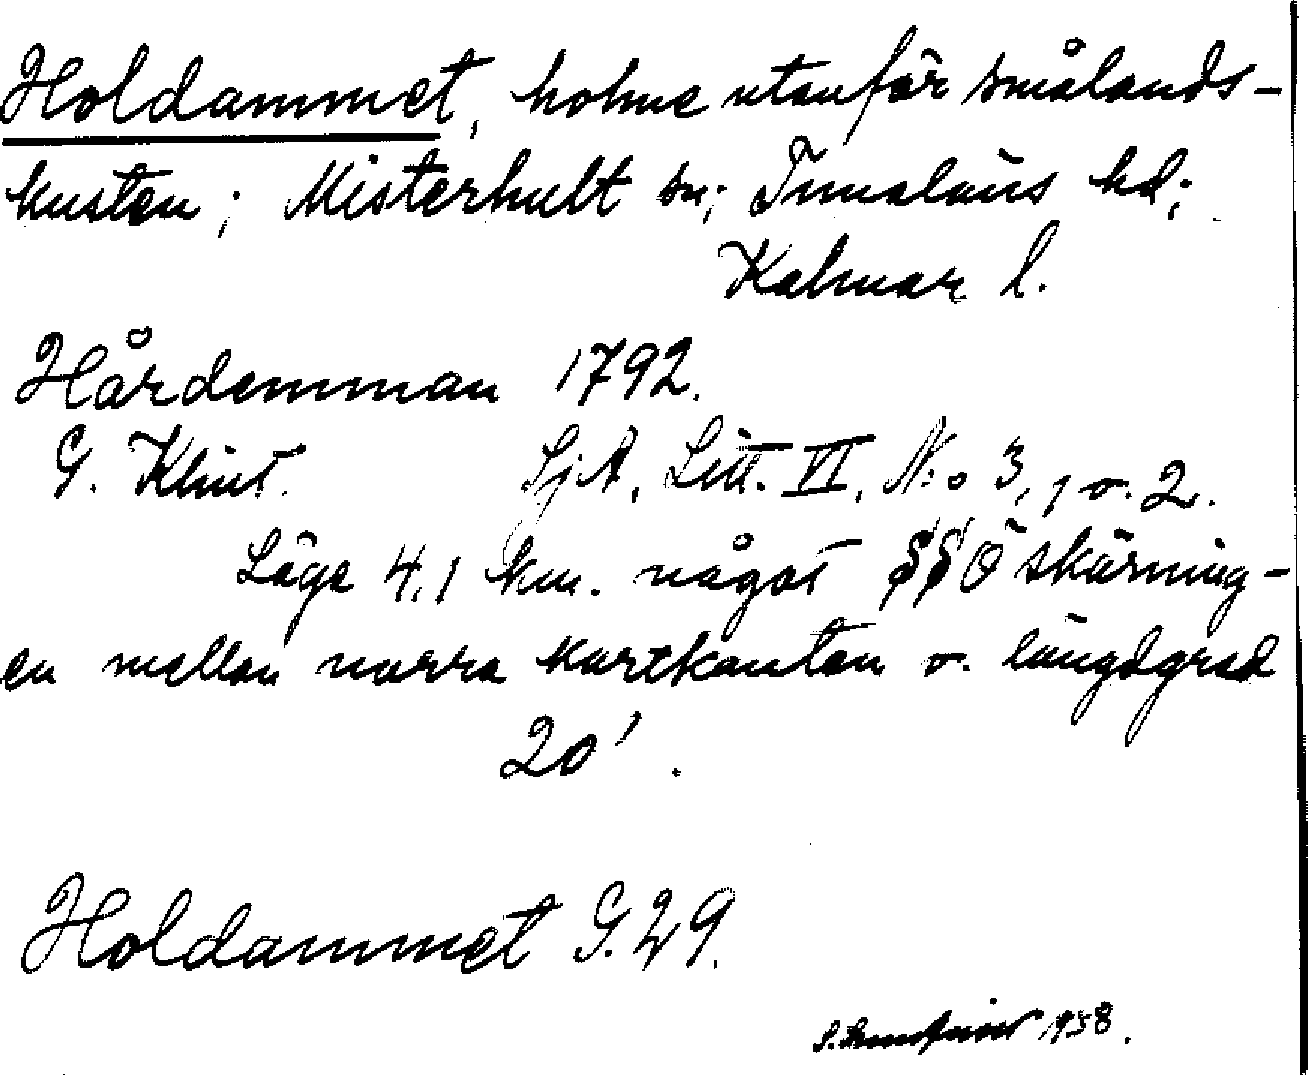 Holdammet, holme utanför smålands-
kusten; Misterhult sn; Tunaläns hd;
Kalmar l.
Hårdemman 1792.
G. Klint. SjA, Litt. VI, N:o 3, 1 o. 2.
Läge 4,1 km. något SSO skärning-
en mellan norra kartkanten o. längdgrad
20'.
Holdammet G. 29.
1938.